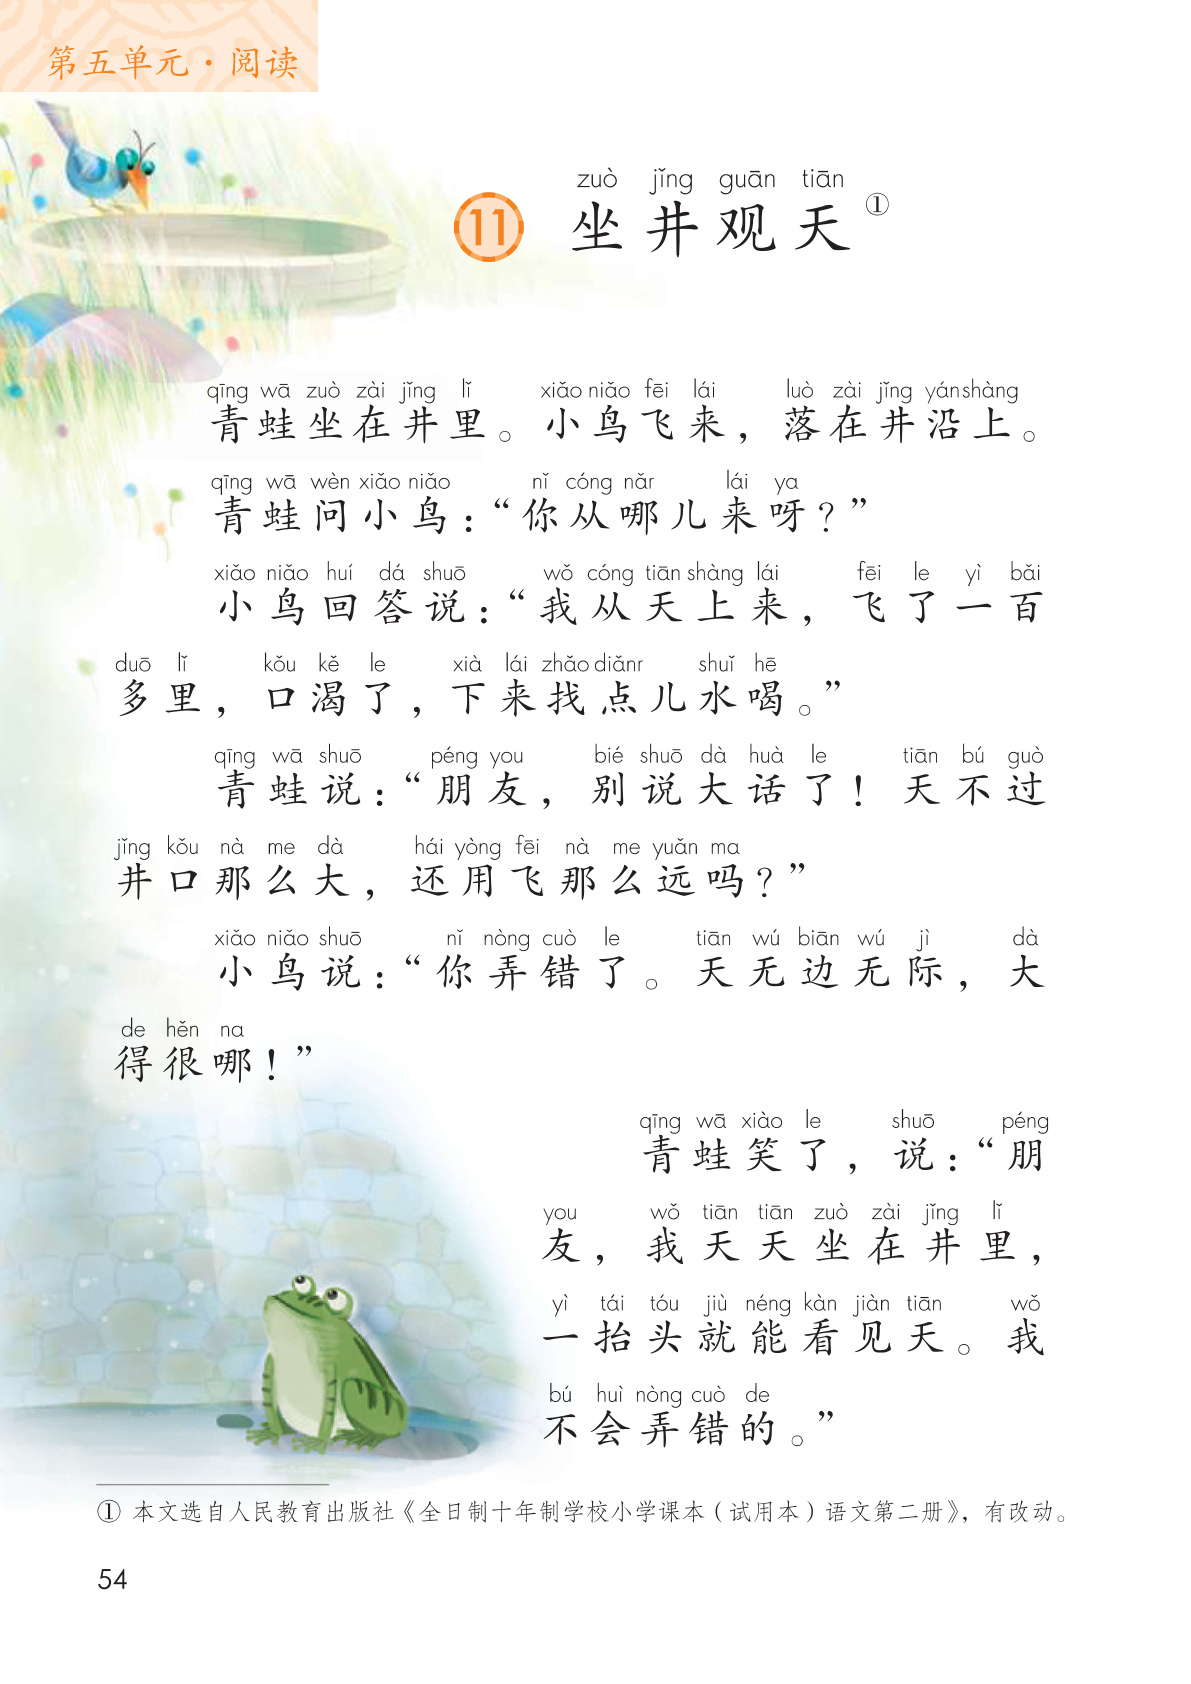 第五单元·阅读
zuò jǐng guān tiān
11 坐井观天①
qīng wā zuò zài jǐng lǐ xiǎo niǎo fēi lái luò zài jǐng yán shàng
青蛙坐在井里。小鸟飞来，落在井沿上。
qīng wā wèn xiǎo niǎo nǐ cóng nǎr lái ya
青蛙问小鸟：“你从哪儿来呀？”
xiǎo niǎo huí dá shuō wǒ cóng tiān shàng lái fēi le yì bǎi
小鸟回答说：“我从天上来，飞了一百
duō lǐ kǒu kě le xià lái zhǎo diǎnr shuǐ hē
多里，口渴了，下来找点儿水喝。”
qīng wā shuō péng you bié shuō dà huà le tiān bú guò
青蛙说：“朋友，别说大话了！天不过
jǐng kǒu nà me dà hái yòng fēi nà me yuǎn ma
井口那么大，还用飞那么远吗？”
xiǎo niǎo shuō nǐ nòng cuò le tiān wú biān wú jì dà
小鸟说：“你弄错了。天无边无际，大
de hěn na
得很哪！”
qīng wā xiào le shuō péng
青蛙笑了，说：“朋
you wǒ tiān tiān zuò zài jǐng lǐ
友，我天天坐在井里，
yì tái tóu jiù néng kàn jiàn tiān wǒ
一抬头就能看见天。我
bú huì nòng cuò de
不会弄错的。”
① 本文选自人民教育出版社《全日制十年制学校小学课本（试用本）语文第二册》，有改动。
54